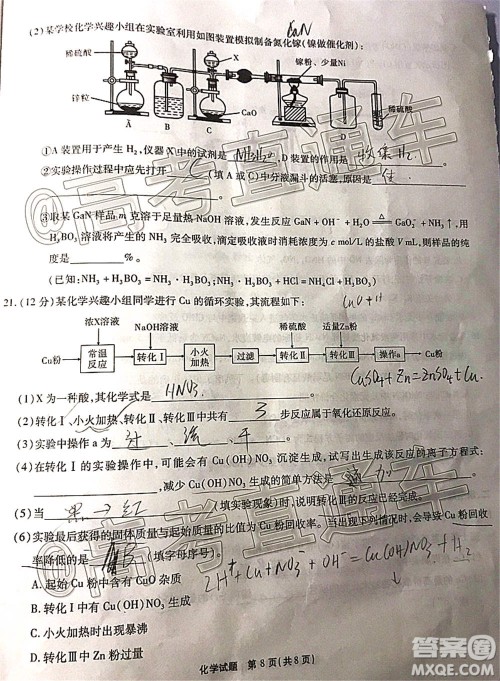 (2)某学校化学兴趣小组在实验室利用如图装置模拟制备氮化镓(镍做催化剂):
GaN
稀硫酸
X
镓粉、少量Ni
锌粒
CaO
稀硫酸
A
B
C
D
①A装置用于产生H₂,仪器X中的试剂是
D装置的作用是 收集H₂.
②实验操作过程中应先打开
(填A或C)中分液漏斗的活塞,原因是
③取某GaN样品m克溶于足量热NaOH溶液,发生反应GaN+OH⁻+H₂O=△=GaO₂⁻+NH₃↑,用
H₃BO₃溶液将产生的NH₃完全吸收,滴定吸收液时消耗浓度为c mol/L的盐酸V mL,则样品的纯
度是________%。
(已知:NH₃+H₃BO₃=NH₃·H₃BO₃;NH₃·H₃BO₃+HCl=NH₄Cl+H₃BO₃)
21.(12分)某化学兴趣小组同学进行Cu的循环实验,其流程如下:
浓X溶液
NaOH溶液
稀硫酸
适量Zn粉
Cu粉→常温反应→转化Ⅰ→小火加热→过滤→转化Ⅱ→转化Ⅲ→操作a→Cu粉
CuSO₄+Zn=ZnSO₄+Cu.
(1)X为一种酸,其化学式是 HNO₃
(2)转化Ⅰ、小火加热、转化Ⅱ、转化Ⅲ中共有 3 步反应属于氧化还原反应。
(3)实验中操作a为 过、洗、干。
(4)在转化Ⅰ的实验操作中,可能会有Cu(OH)NO₃沉淀生成,试写出生成该反应的离子方程式:
,减少Cu(OH)NO₃生成的简单方法是
(5)当 黑→红 (填实验现象)时,说明转化Ⅲ的反应已经完成。
(6)实验最后获得的固体质量与起始的质量的比值为Cu粉回收率。当出现下列情况时,会导致Cu粉回收
率降低的是 B (填字母序号)。
A.起始Cu粉中含有CuO杂质
B.转化Ⅰ中有Cu(OH)NO₃生成
C.小火加热时出现暴沸
D.转化Ⅲ中Zn粉过量
2H⁺+Cu+NO₃⁻+OH⁻=Cu(OH)NO₃+H₂
↓
化学试题 第8页(共8页)
@高考直通车
@高考直通车
答案圈
MXQE.COM